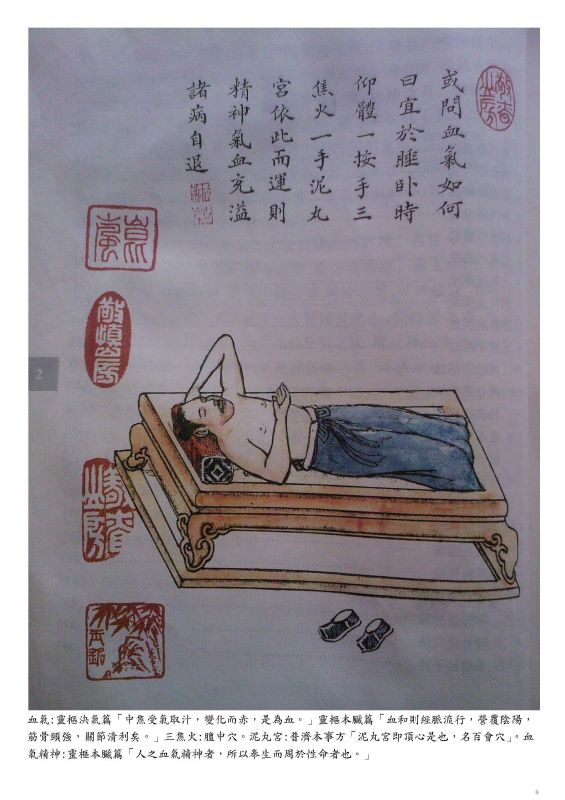 或問血氣如何
曰宜於睡卧時
仰體一按手三
焦火一手泥丸
宮依此而運則
精神氣血充溢
諸病自退
2
血氣:靈樞決氣篇「中焦受氣取汁，變化而赤，是為血。」靈樞本臟篇「血和則經脈流行，營覆陰陽，
筋骨頸強，關節清利矣。」三焦火:膻中穴。泥丸宮:普濟本事方「泥丸宮即頂心是也，名百會穴」。血
氣精神:靈樞本臟篇「人之血氣精神者，所以奉生而周於性命者也。」
6